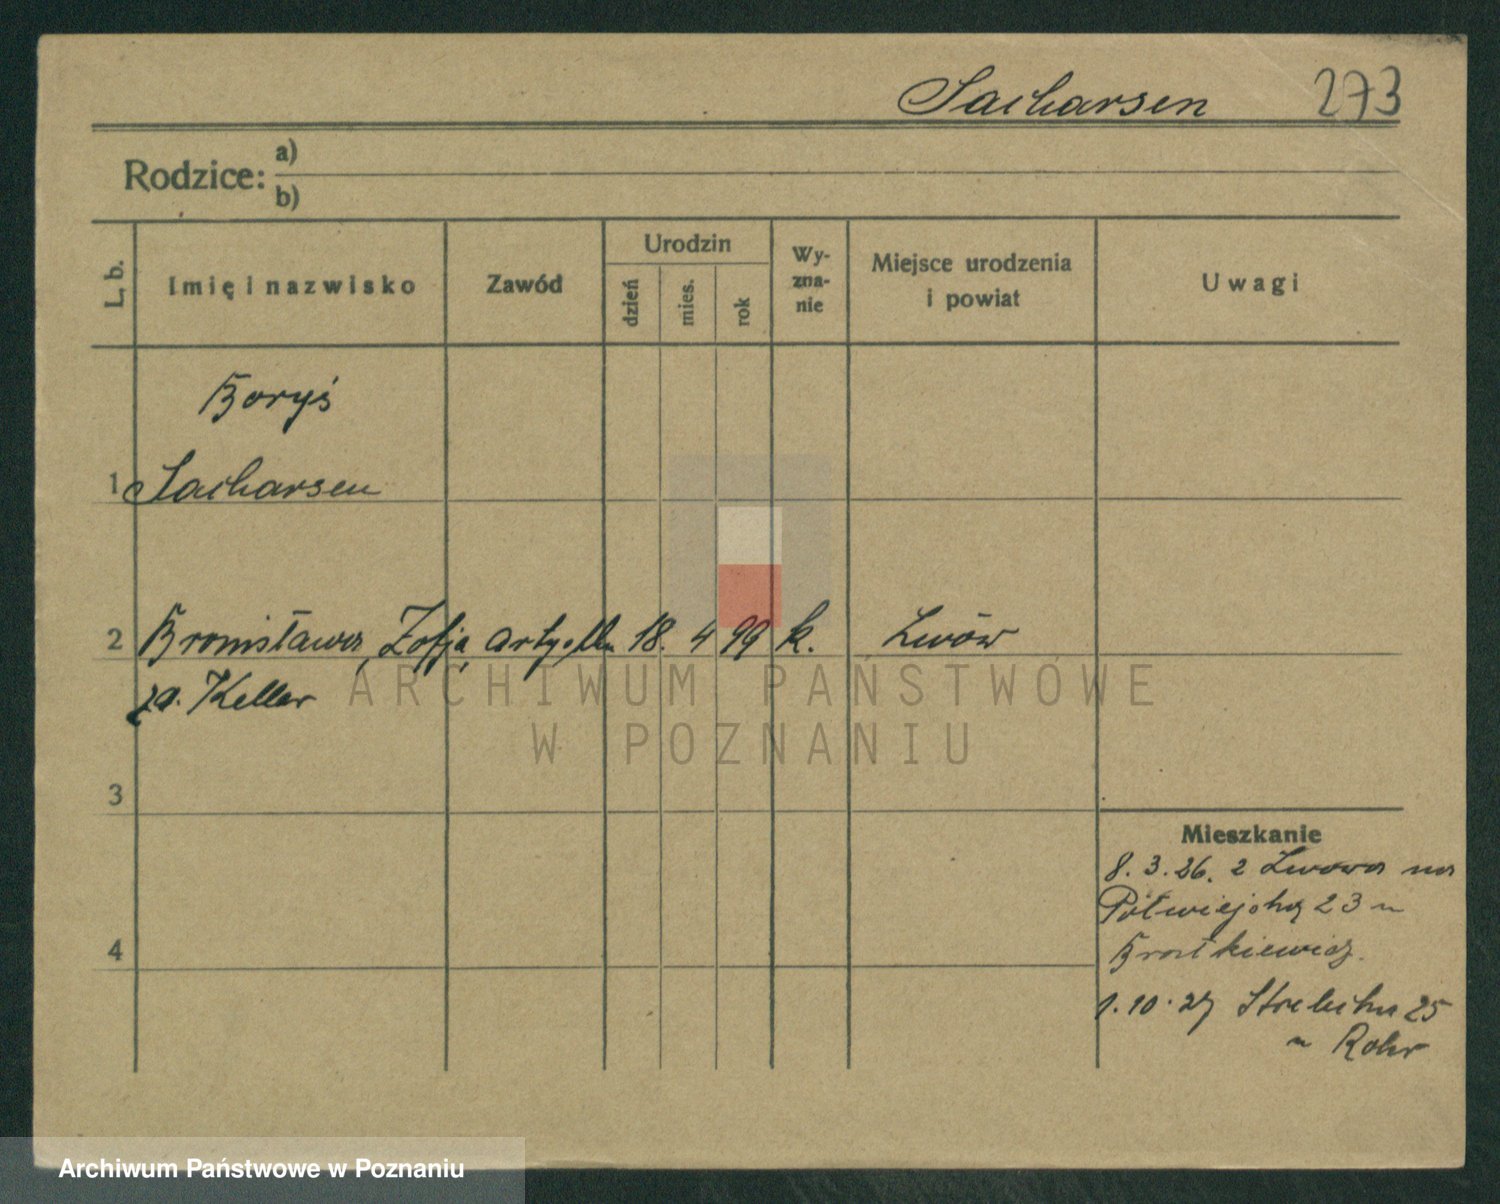 Sacharsen 273
Rodzice: a)
b)
L. b. Imię i nazwisko Zawód Urodzin dzień mies. rok Wy-zna-nie Miejsce urodzenia i powiat Uwagi
Boryś
1 Sacharsen
2 Bronisława, Zofja 18. 4 99 k. Lwów
Keller
ARCHIWUM PAŃSTWOWE
W POZNANIU
3
Mieszkanie
8. 3. 26. z Lwowa na
Półwiejską 23
4
1. 10. 27 25
Rohr
Archiwum Państwowe w Poznaniu